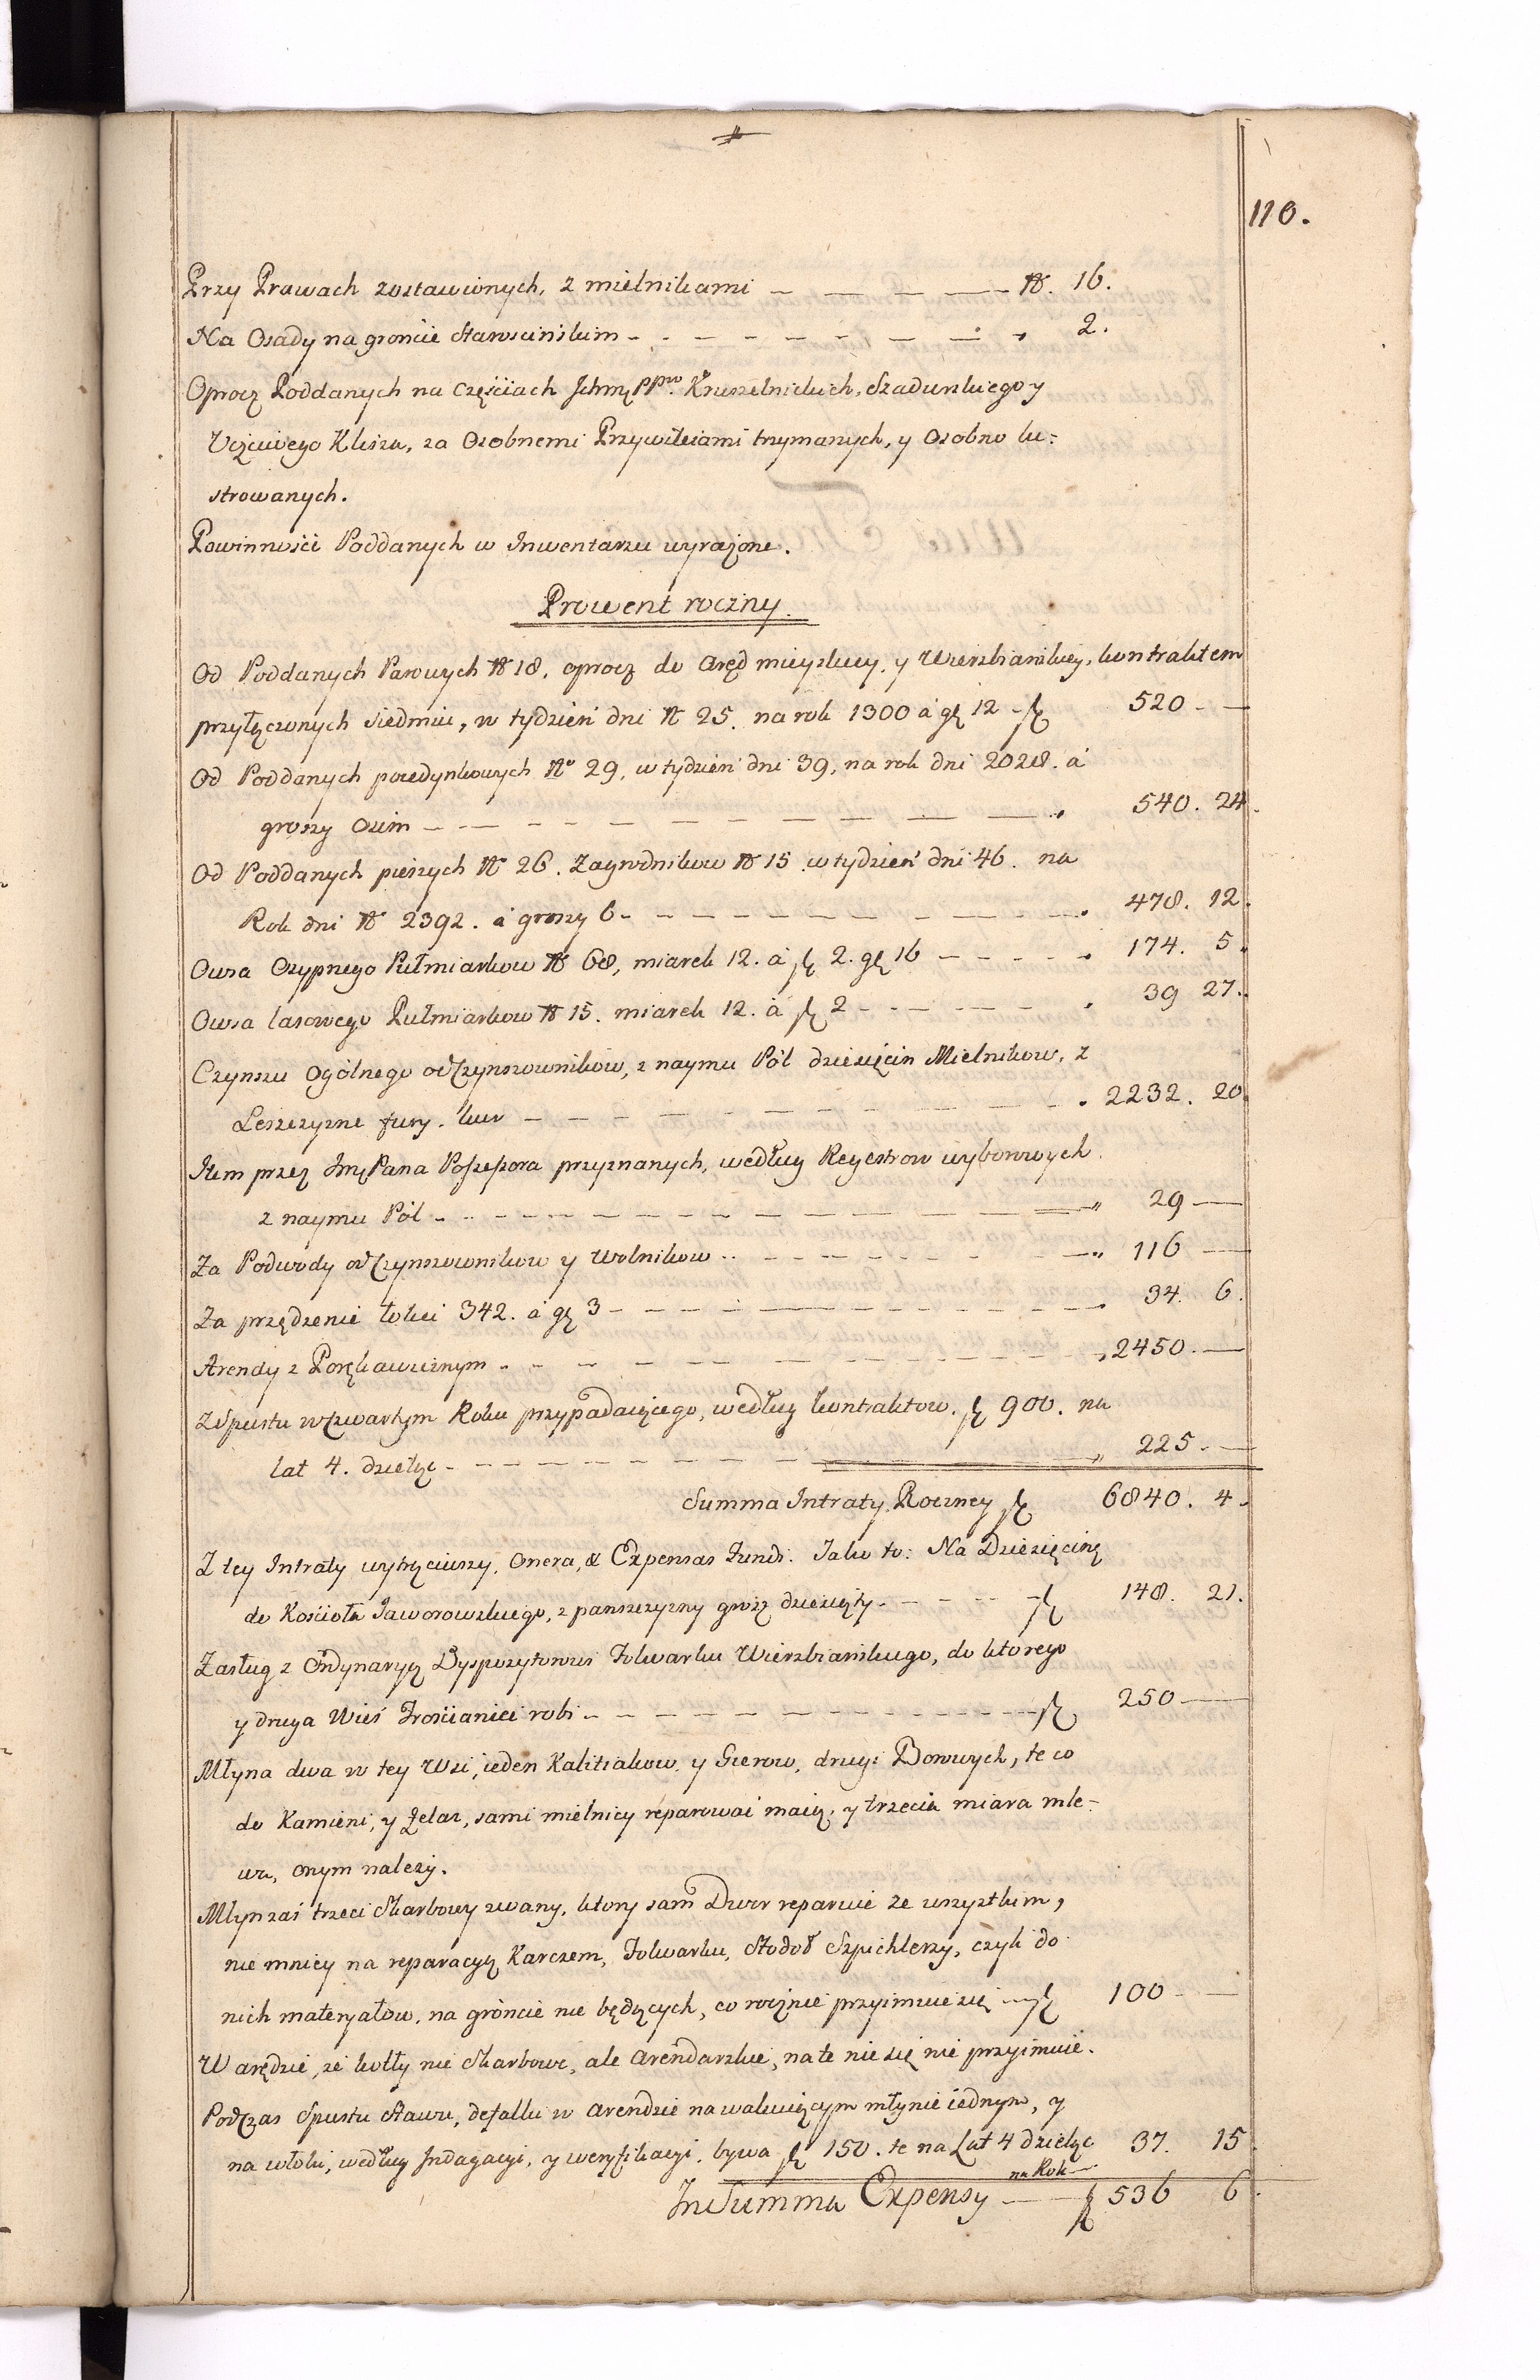 110.
Przy Prawach zostawionych, z mielnikami — — — — N. 16.
Na Osady na grońcie Starościńskim - - - - - - - - „ 2.
Oprocz Poddanych na częściach Jchmę PPw. Kruszelnickich, Szadurskiego y
Uczciwego Klisza, za Osobnemi Przywileiami trzymanych, y Osobno lu-
strowanych.
Powinności Poddanych w Inwentarzu wyrażone.
Prowent roczny.
Od Poddanych Parowych N 18. oprocz do Aręd mieyskiey, y Wierzbianskiey, kontraktem
przyłączonych siedmiu, w tydzień dni N 25. na rok 1300 á gę 12 - f 520 - —
Od Poddanych poiedynkowych No 29, w tydzień dni 39, na rok dni 2028. á
groszy Osim - — - - - — — — — — — „ 540. 24.
Od Poddanych pieszych N 26. Zagrodnikow N 15. w tydzień dni 46. na
Rok dni N 2392. á groszy 6 - - - - - - - - - „ 478. 12.
Owsa Osypnego Pułmiarkow N 68, miarek 12. á f 2. gę 16 - - - - - „ 174. 5.
Owsa lasowego Pułmiarkow N 15. miarek 12. á f 2 - - - - — - „ 39 27.
Czynszu Ogólnego od Czynszownikow, z naymu Pól dziesięcin Mielnikow, z
Leszczyzne fury. kur — - - - — — — — — - „ 2232. 20.
Item przez Jmę Pana Possessora przyznanych, według Regestrow wybornych
z naymu Pól - - - - - - - — — — — — „ 29 —
Za Podwody od Czynszownikow y Wolnikow - - - - - - - - - „ 116 —
Za przędzenie łokci 342. á gę 3 - - - - - - - - - - „ 34. 6.
Arendy z Porękawicznym - - - - - - - - - - - „ 2450. —
Z Spustu w czwartym Roku przypadaiącego, według kontraktow. f 900. na
lat 4. dzieląc - - - - - - - - - - - „ 225. —
Summa Intraty Roczney f 6840. 4.
Z tey Intraty wytrąciwszy, Onera, & Expensas Fundi. Jako to: Na Dziesięcinę
do Kościoła Jaworowskiego, z panszczyzny grosz dziesięty - - - - - f 148. 21.
Zasług z Ordynaryą Dyspozytorowi Folwarku Wierzbianskiego, do ktorego
y druga Wieś Trościaniec robi - - - - - - - - - - f 250 —
Młyna dwa w tey Wsi, ieden Kalitiakow y Gierow, drugi Borowych, te co
do Kamieni, y Żelaz, sami mielnicy reparować maią, y trzecia miara mle-
wa, onym należy.
Młyn zaś trzeci Skarbowy zwany, ktory sam Dwor reparuie ze wszystkim,
nie mniey na reparacyą Karczem, Folwarku, Stodoł Szpichlerzy, czyli do
nich materyałow, na grońcie nie będących, co rocznie przyimuie się - - f 100 - —
W arędzie, że kotły nie Skarbowe, ale Arendarskie, na te nic się nie przyimuie.
Podczas Spustu Stawu, defalku w Arendzie na walniącym młynie iednym, y
na włoku, według Indagacyi, y weryfikacyi, bywa f 150. te na Lat 4 dzieląc 37. 15.
na Rok —
In Summa Expensy — — f 536 6.